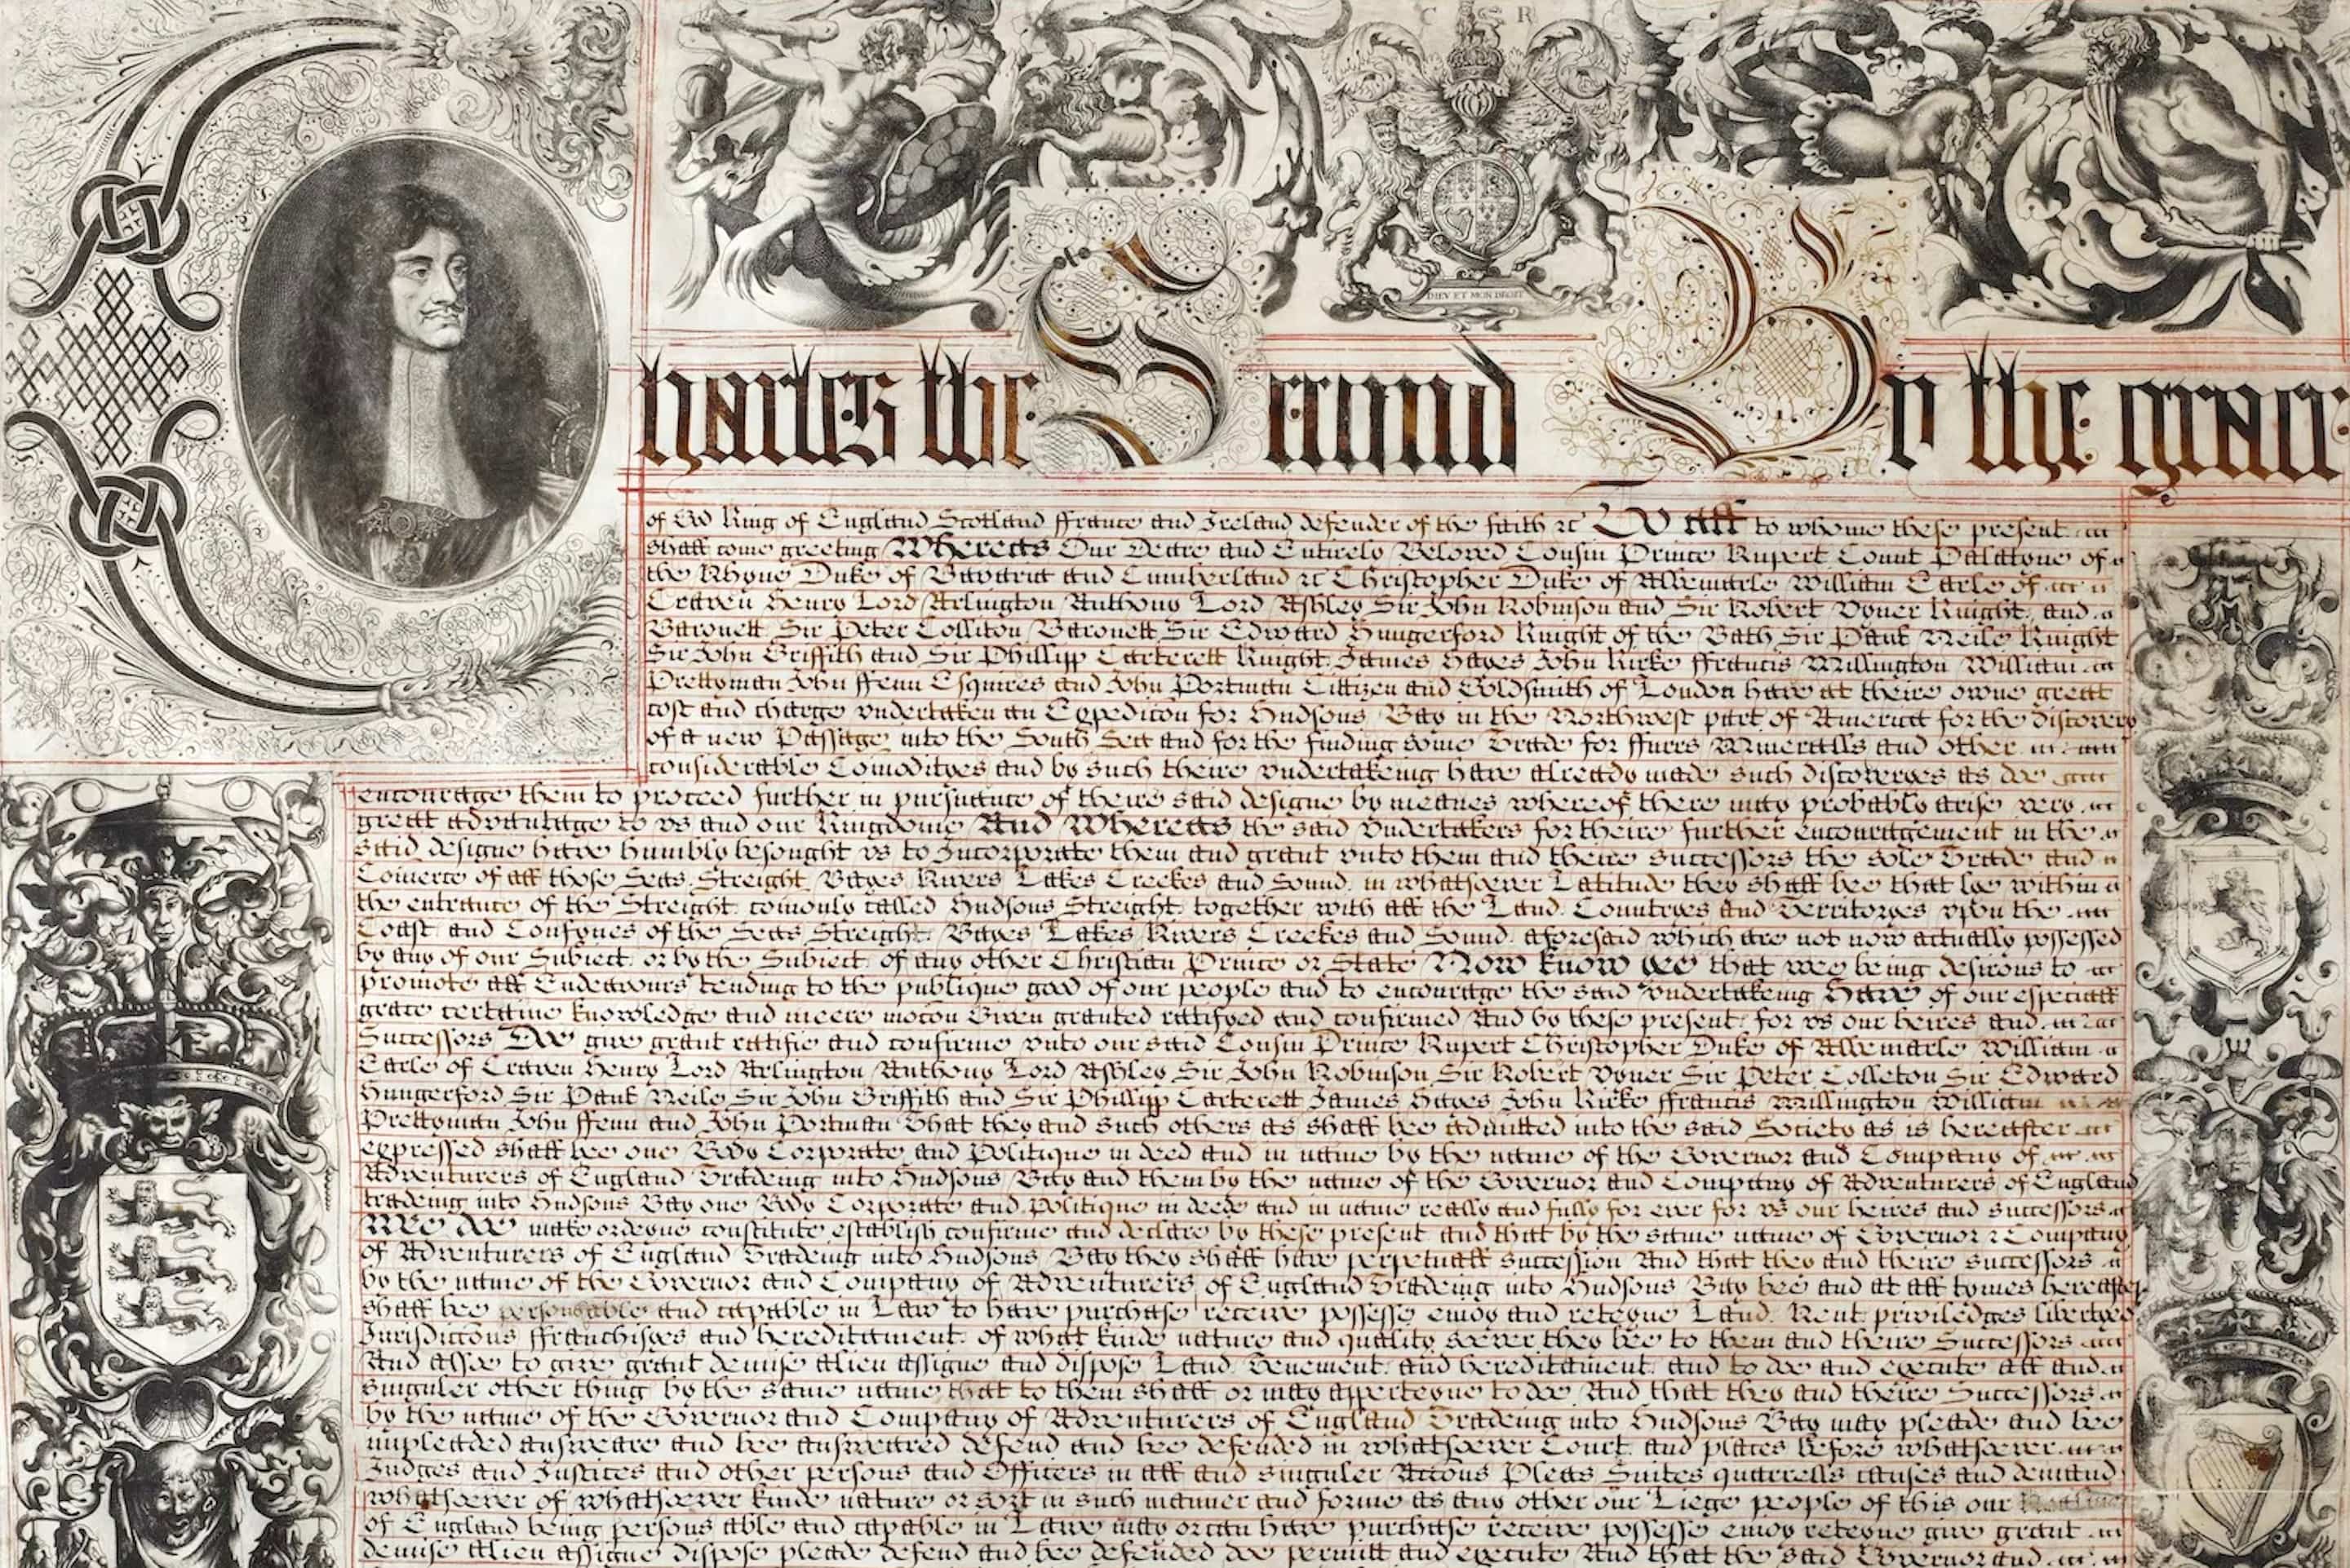 C R
DIEV ET MON DROIT
Charles the Second By the grace
of God King of England Scotland ffrance and Ireland defender of the faith &c To all to whome these present
shall come greeting Whereas Our Deare and Entirely Beloved Cousin Prince Rupert Count Palatyne of
the Rhyne Duke of Bavaria and Cumberland &c Christopher Duke of Albemarle William Earle of
Craven Henry Lord Arlington Anthony Lord Ashley Sir John Robinson and Sir Robert Vyner Knight and
Baronett Sir Peter Colliton Baronett Sir Edward Hungerford Knight of the Bath Sir Paul Neile Knight
Sir John Griffith and Sir Phillipp Carterett Knight James Hayes John Kirke ffrancis Millington William
Prettyman John ffenn Esquires and John Portman Cittizen and Goldsmith of London have at theire owne great
cost and charge vndertaken an Expedicon for Hudsons Bay in the Northwest part of America for the discovery
of a new Passage into the South Sea and for the finding some Trade for ffurrs Mineralls and other
considerable Comodityes and by such theire vndertakeing have already made such discoveryes as doe
encourage them to proceed further in pursuance of theire said designe by meanes whereof there may probably arise very
great advantage to vs and our Kingdome And Whereas the said Vndertakers for theire further encouragement in the
said designe have humbly besought vs to Incorporate them and grant vnto them and theire successors the sole Trade and
Comerce of all those Seas Streight Bayes Rivers Lakes Creekes and Sound in whatsoever Latitude they shall bee that lye within
the entrance of the Streight comonly called Hudsons Streight together with all the Land Countryes and Territoryes vpon the
Coast and Confynes of the Seas Streight Bayes Lakes Rivers Creekes and Sound aforesaid which are not now actually possessed
by any of our Subject or by the Subject of any other Christian Prince or State Now know yee that wee being desirous to
promote all Endeavours tending to the publique good of our people and to encourage the said vndertakeing Have of our especiall
grace certaine knowledge and meere mocon Given granted ratifyed and confirmed And by these present for vs our heires and
Successors Doe give grant ratifie and confirme vnto our said Cousin Prince Rupert Christopher Duke of Albemarle William
Earle of Craven Henry Lord Arlington Anthony Lord Ashley Sir John Robinson Sir Robert Vyner Sir Peter Colleton Sir Edward
Hungerford Sir Paul Neile Sir John Griffith and Sir Phillipp Carterett James Hayes John Kirke ffrancis Millington William
Prettyman John ffenn and John Portman That they and such others as shall bee admitted into the said Society as is hereafter
expressed shall bee one Body Corporate and Politique in deed and in name by the name of the Governor and Company of
Adventurers of England Tradeing into Hudsons Bay and them by the name of the Governor and Company of Adventurers of England
tradeing into Hudsons Bay one Body Corporate and Politique in deede and in name really and fully for ever for vs our heires and successors
Wee doe make ordeyne constitute establish confirme and declare by these present and that by the same name of Governor & Company
of Adventurers of England Tradeing into Hudsons Bay they shall have perpetuall succession And that they and theire successors
by the name of the Governor and Company of Adventurers of England Tradeing into Hudsons Bay bee and at all tymes hereafter
shall bee personable and capable in Law to have purchase receive possesse enioy and reteyne Land Rent priviledges libertyes
Jurisdiccons ffranchises and hereditament of what kinde nature and quality soever they bee to them and theire Successors
And alsoe to give grant demise alien assigne and dispose Land Tenement and hereditament and to doe and execute all and
singuler other thing by the same name that to them shall or may apperteyne to doe And that they and theire Successors
by the name of the Governor and Company of Adventurers of England Tradeing into Hudsons Bay may pleade and bee
impleaded answeare and bee answeared defend and bee defended in whatsoever Court and places before whatsoever
Judges and Justices and other persons and Officers in all and singuler Accons Pleas Suites quarrells causes and demand
whatsoever of whatsoever kinde nature or sort in such manner and forme as any other our Liege people of this our Realme
of England being persons able and capable in Lawe may or can have purchase receive possesse enioy reteyne give grant
demise alien assigne dispose pleade defend and bee defended doe permitt and execute And that the said Governor and